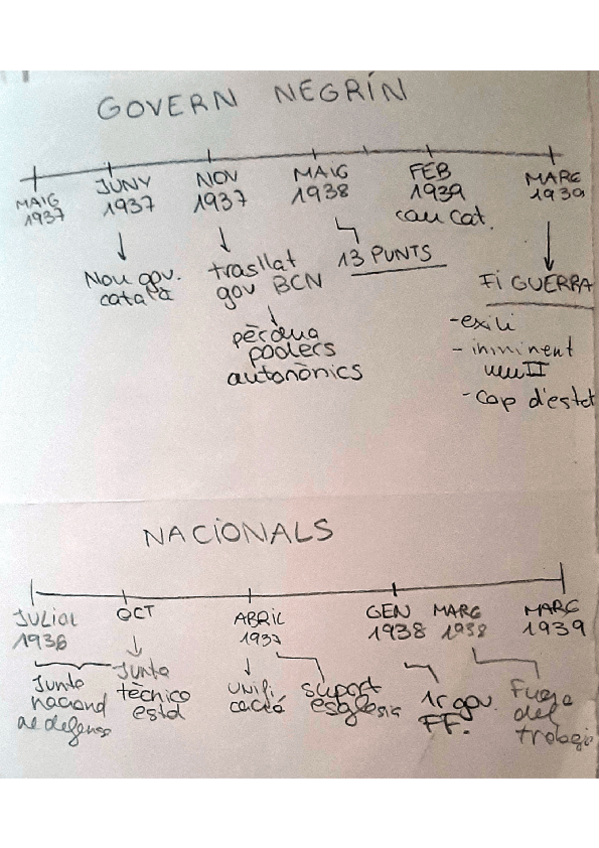 GOVERN NEGRÍN
MAIG
1937
JUNY
1937
NOV
1937
MAIG
1938
FEB
1939
cau cat.
MARÇ
1939
Nou gov.
català
trasllat
gov BCN
pèrdua
poders
autonònics
13 PUNTS
Fi GUERRA
-exili
- imminent
WWII
- cap d'estat
NACIONALS
JULIOL
1936
OCT
ABRIL
1937
GEN
1938
MARÇ
1938
MARÇ
1939
Junta
nacional
de defensa
Junta
tècnica
estat
unifi
cació
suport
església
1r gov.
FF.
Fuero
del
trabajo